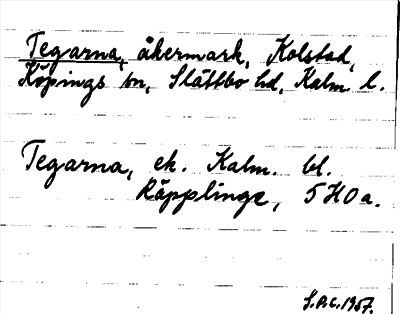 Tegarna, åkermark, Kolstad,
Köpings sn, Slättbo hd, Kalm. l.
Tegarna, ek. Kalm. bl.
Räpplinge, 5 H 0 a.
S.P.C. 1957.